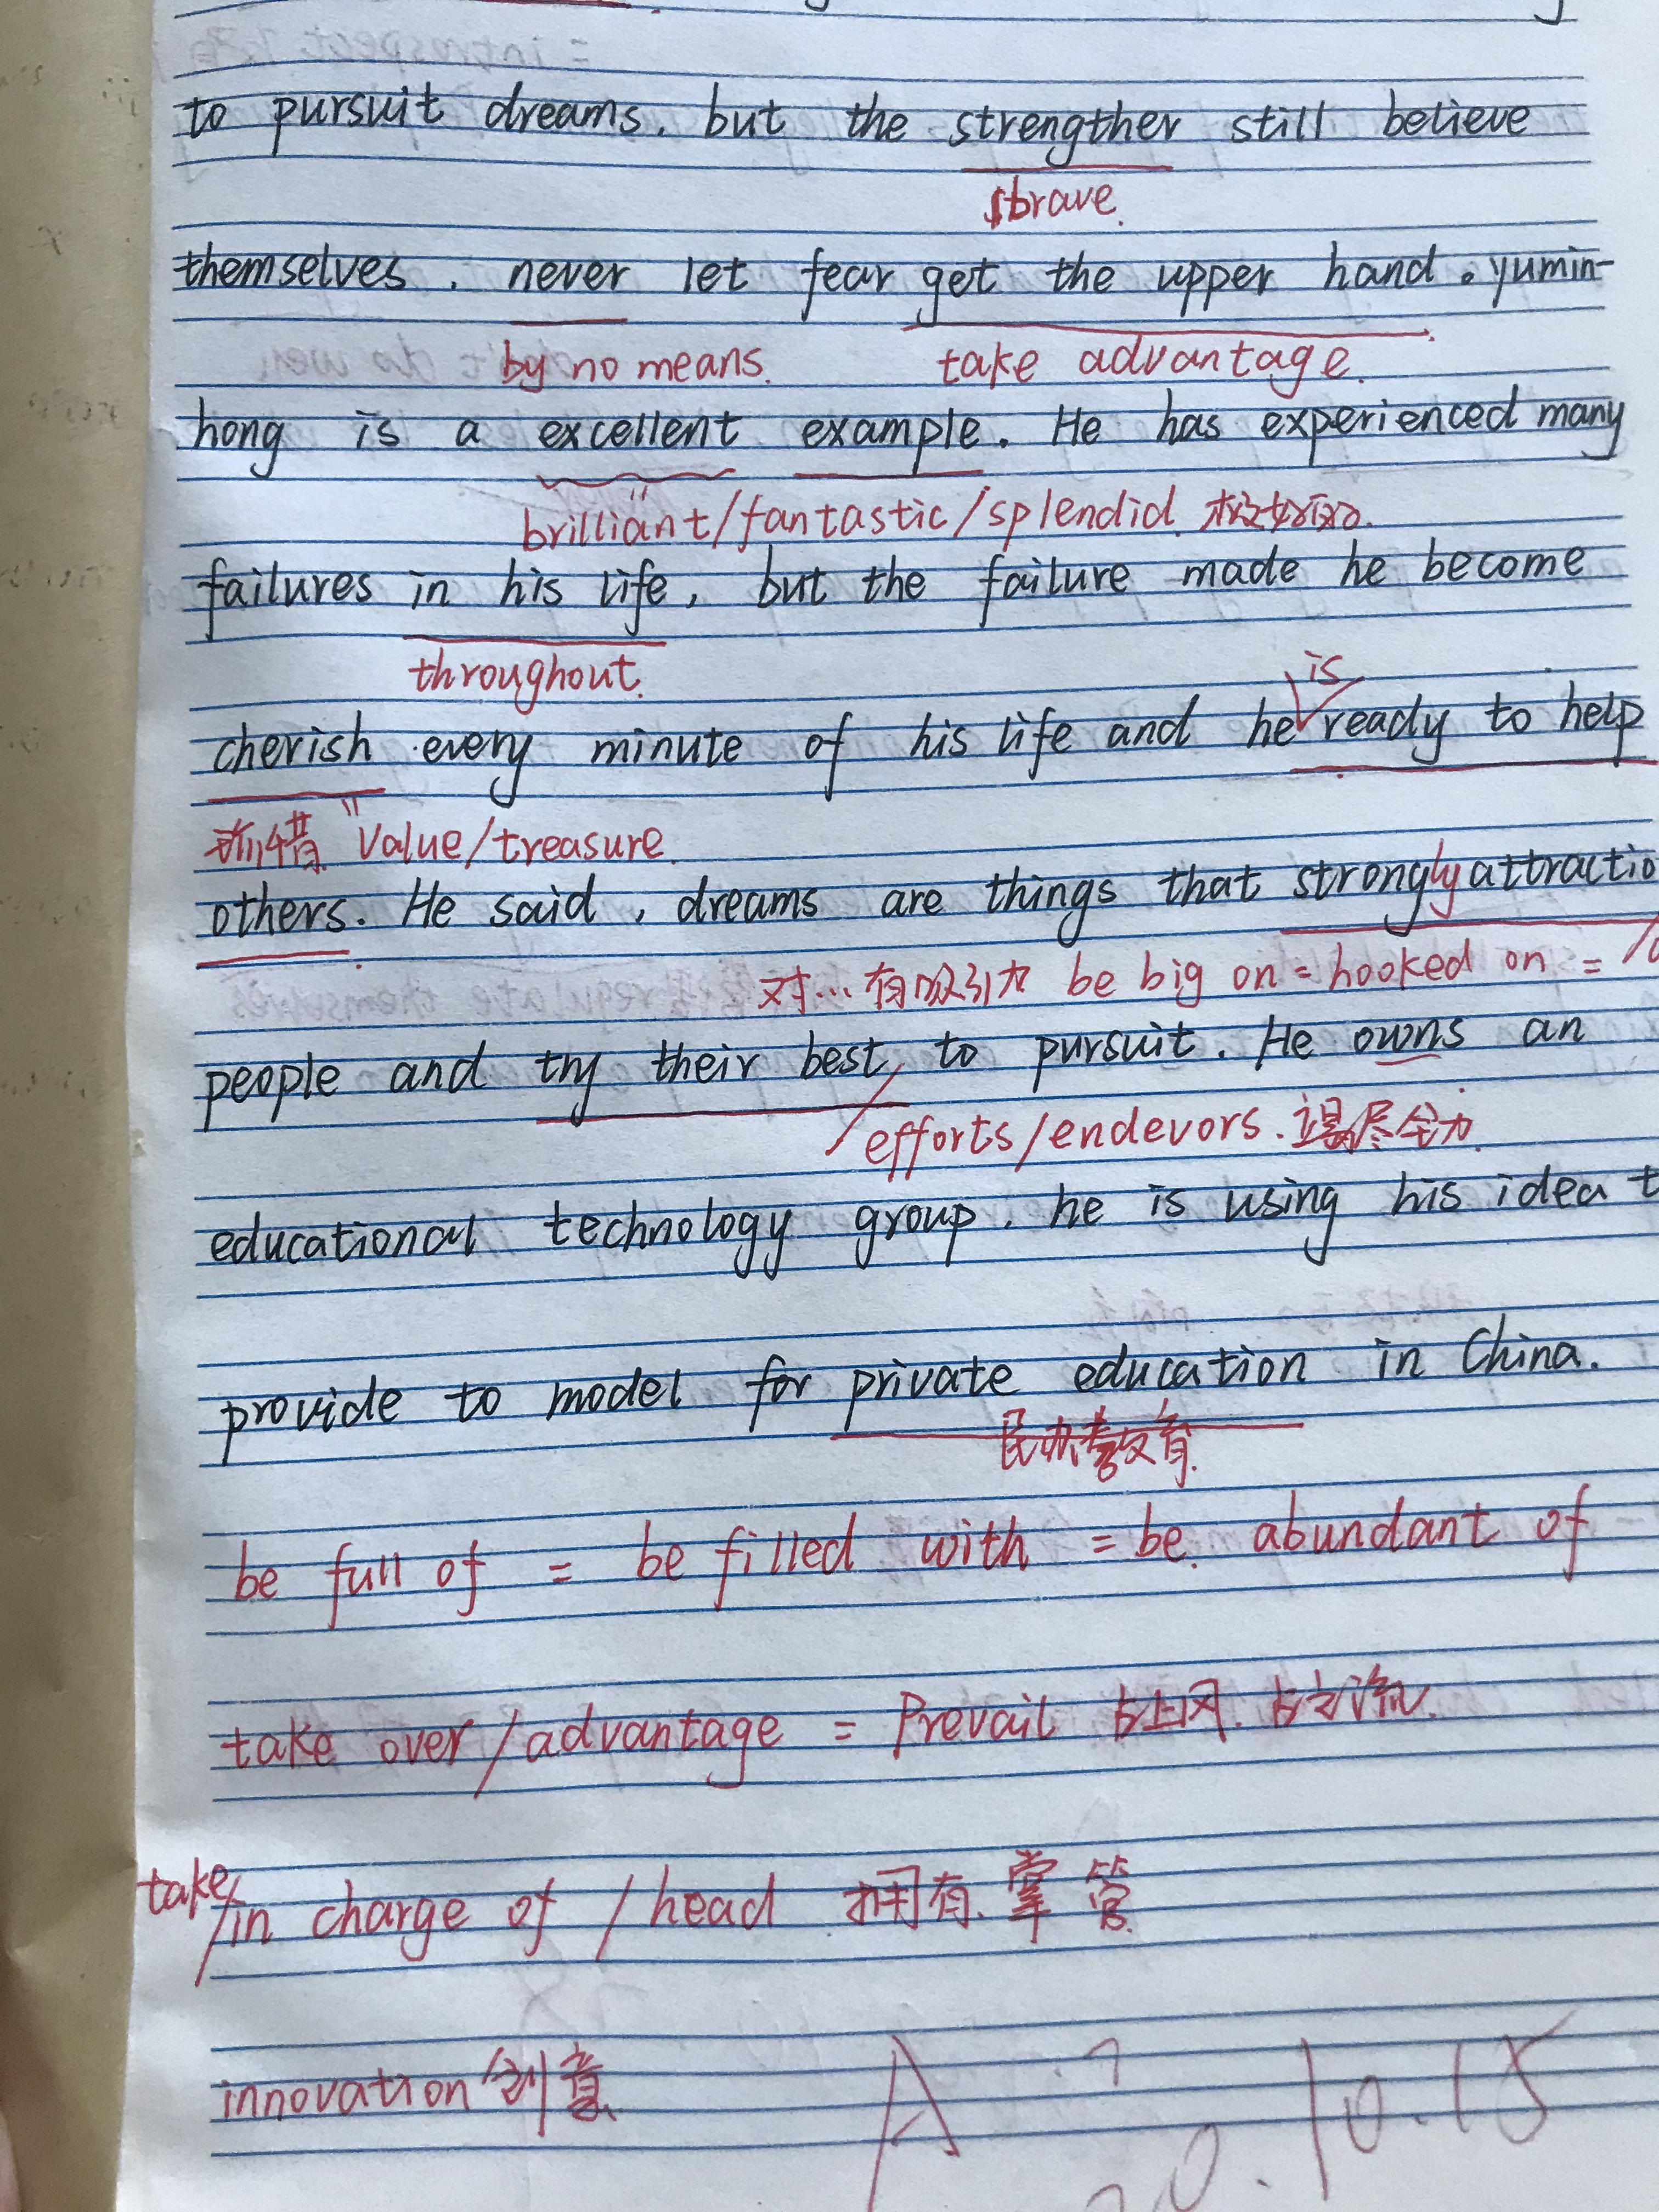 to pursuit dreams, but the strengther still believe
brave.
themselves, never let fear get the upper hand. yumin-
by no means. take advantage.
hong is a excellent example. He has experienced many
brilliant/fantastic/splendid 极好的.
failures in his life, but the failure made he become
throughout. is
cherish every minute of his life and he ready to help
珍惜 = value/treasure.
others. He said, dreams are things that strongly attractio
对...有吸引力 be big on = hooked on =
people and try their best to pursuit. He owns an
efforts/endevors. 竭尽全力.
educational technology group, he is using his idea t
provide to model for private education in China.
民办教育.
be full of = be filled with = be abundant of
take over/advantage = Prevail 占上风. 占主流.
take/in charge of / head 拥有. 掌管.
innovation 创意.
A
20.10.15